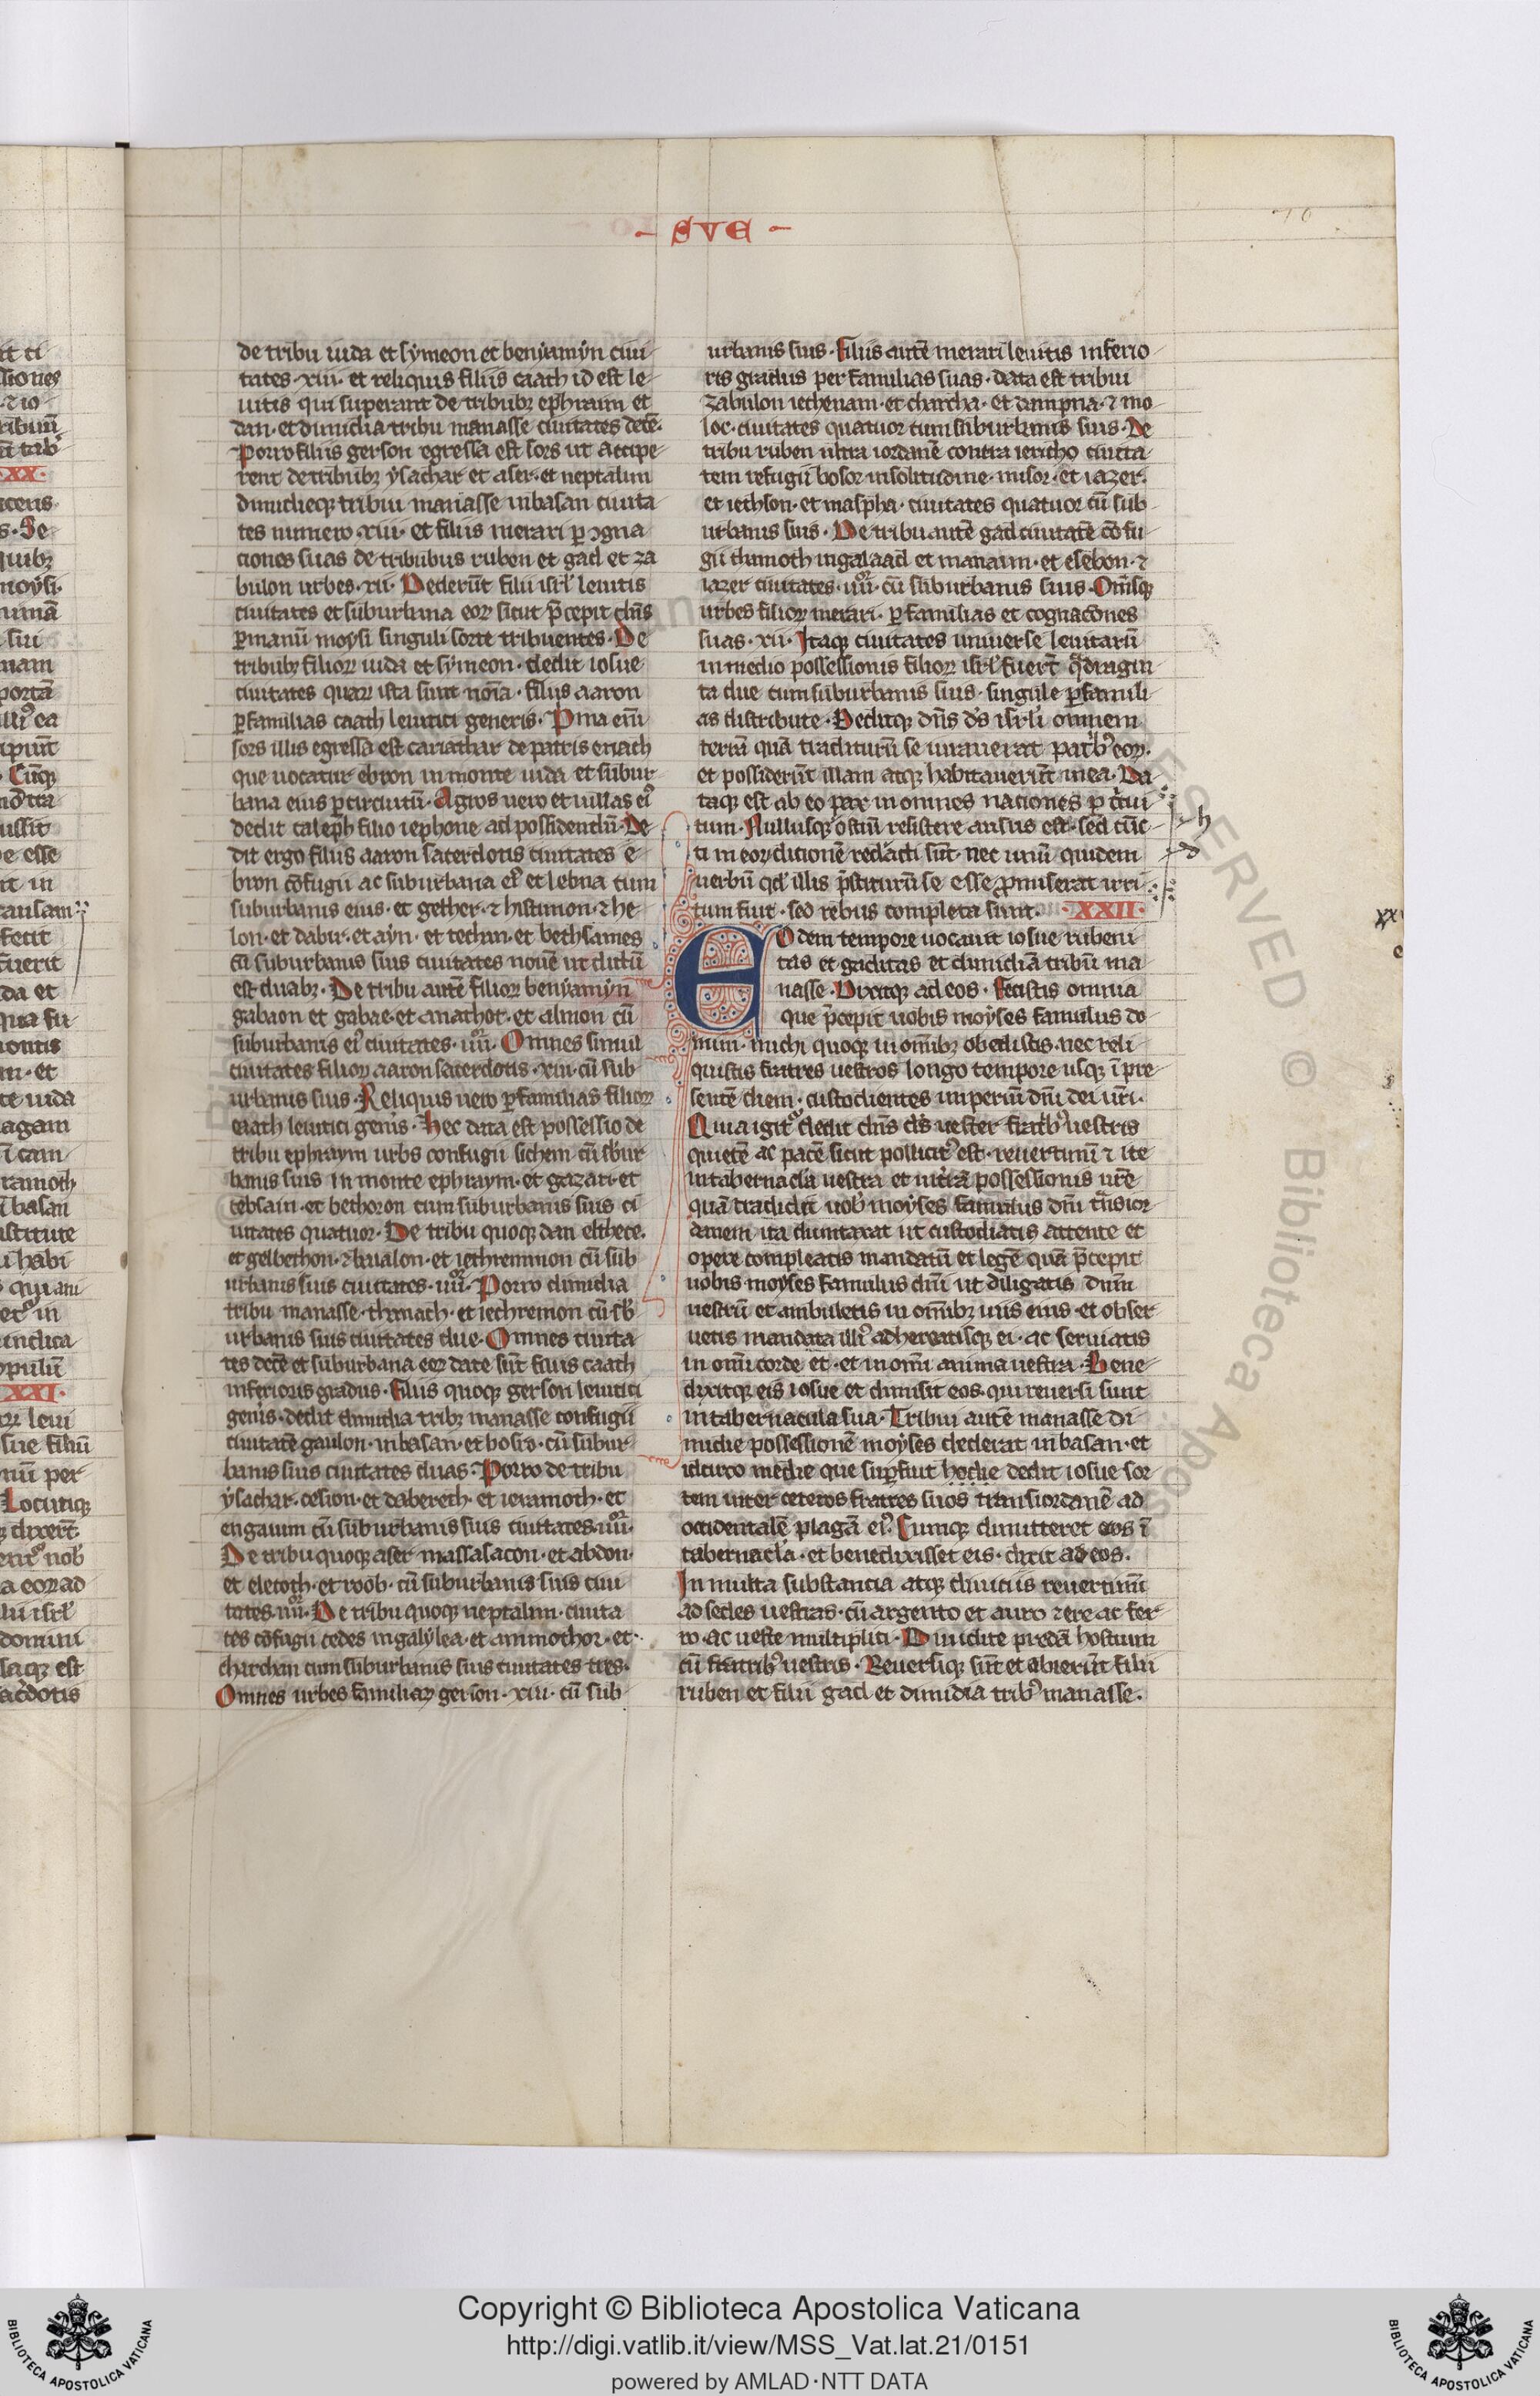 - SVE -
70
de tribu iuda et symeon et benyamyn ciui-
tates .xiii. et reliquis filiis caath id est le-
uitis qui superant de tribubꝫ ephraim et
dan. et dimidia tribu manasse ciuitates decē.
Porro filiis gerson egressa est sors ut accipe-
rent de tribubꝫ ysachar et aser. et neptalim
dimidieqꝫ tribui manasse in basan ciuita
tes numero .xiii. et filiis merari ꝑ ↄgna
ciones suas de tribubus ruben et gad et za
bulon urbes .xii. Dederūt filii isrl' leuitis
ciuitates et suburbana eoꝝ sicut p̄cepit dn̄s
ꝑ manū moysi singuli sorte tribuentes. De
tribubꝫ filioꝝ iuda et symeon. dedit iosue
ciuitates quaꝝ ista sunt noīa. filiis aaron
ꝑ familias caath leuitici generis. Pma enī
sors illis egressa est cariathar de patris enach
que uocatur ebron in monte iuda et subur-
bana eius ꝑ circuitū. Agros uero et uillas eiꝰ
dedit caleph filio iephone ad possidendū. De-
dit ergo filiis aaron sacerdotis ciuitates e-
bron cōfugii ac suburbana eiꝰ et lebna cum
suburbanis eius. et gether. ⁊ histimon. ⁊ he-
lon. et dabir. et ayn. et techan. et bethsames
cū suburbanis suis ciuitates nouē ut dictū
est duabꝫ. De tribu autē filioꝝ benyamyn
gabaon et gabae. et anathot. et almon cū
suburbanis eiꝰ ciuitates .iiii. Omnes simul
ciuitates filioꝝ aaron sacerdotis .xiii. cū sub-
urbanis suis. Reliquis uero ꝑ familias filioꝝ
caath leuitici genīs. Hec data est possessio de
tribu ephraym urbs confugii sichem cū sbur
banis suis in monte ephraym. et gazari. et
cebsain. et bethoron cum suburbanis suis ci
uitates quatuor. De tribu quoqꝫ dan elthece.
et gelbethon. ⁊ haialon. et iethremmon cū sub
urbanis suis ciuitates .iiii. Porro dimidia
tribu manasse. thanach. et iechremon cū sb-
urbanis suis ciuitates due. Omnes ciuita
tes decē et suburbana eoꝝ date sūt filiis caath
inferioris gradus. filiis quoqꝫ gerson leuitici
genīs. dedit dimidia tribꝫ manasse confugii
ciuitatē gaulon. in basan. et bosra. cū subur-
banis suis ciuitates duas. Porro de tribu
ysachar. cesion. et dabereth. et ieramoth. et
engaiim cū suburbanis suis ciuitates .iiii.
De tribu quoqꝫ aser massalacon. et abdon.
et elecoth. et roob. cū suburbanis suis ciui
tates .iiii. De tribu quoqꝫ neptalim. ciuita
tes cōfugii cedes in galylea. et ammothor. et
charchan cum suburbanis suis ciuitates tres.
Omnes urbes familiaꝝ gerson .xiii. cū sub-
urbanis suis. filiis autē merari leuitis inferio-
ris gradus per familias suas. data est tribui
zabulon iechenam. et charcha. et dampna. ⁊ mo-
loc. ciuitates quatuor cum suburbanis suis. De
tribu ruben ultra iordanē contra iericho ciuita-
tem refugii bosor in solitudine. misor. et iazer.
et iethson. et maspha. ciuitates quatuor cū sub-
urbanis suis. De tribu autē gad ciuitatē cōfu-
gii thamoth in galaad et manaim. et esebon. ⁊
iazer ciuitates .iiii. cū suburbanis suis. Om̄sqꝫ
urbes filioꝝ merari. ꝑ familias et cognacōnes
suas .xii. Itaqꝫ ciuitates uniuerse leuitarū
in medio possessionis filioꝝ isrl' fuerūt qͣdragin-
ta due cum suburbanis suis. singule ꝑ famili-
as distribute. Deditqꝫ dn̄s ds isrl'i omnem
terrā quā traditurū se iurauerat patribꝰ eoꝝ.
et possiderūt illam atqꝫ habitauerūt in ea. Da
taqꝫ est ab eo pax in omnes naciones p circui
tum. Nullusqꝫ ostiū resistere ausus est. sed cūc-
ti in eoꝝ dicionē redacti sūt. nec unū quidem
uerbū qd' illis p̄stiturū se esse ꝓmiserat irri-
tum fuit. sed rebus completa sunt. XXII.
EOdem tempore uocauit iosue rubeni
tas et gaditas et dimidiā tribū ma
nasse. Dixitqꝫ ad eos. Fecistis omnia
que p̄cepit uobis moyses famulus do-
mini. michi quoqꝫ in om̄ibꝫ obedistis. nec reli-
quistis fratres uestros longo tempore usqꝫ ī pre-
sentē diem. custodientes imperiū dn̄i dei ur̄i.
Quia igitͬ dedit dn̄s ds uester fratribꝰ uestris
quietē ac pacē sicut pollicitꝰ est. reuertimī ⁊ ite
in tabernacla uestra et in t̄rā possessionis ur̄e
quā tradidit uob' moyses famulus dn̄i t̄nsior-
danem ita dumtaxat ut custodiatis attente et
opere compleatis mandatū et legē quā p̄cepit
uobis moyses famulus dn̄i ut diligatis dn̄m
uestrū et ambuletis in om̄ibꝫ uiis eius. et obser-
uetis mandata illiꝰ adhereatisqꝫ ei. ac seruiatis
in omī corde et. et in omī anima uestra. Bene-
dixitqꝫ eis iosue et dimisit eos. qui reuersi sunt
in tabernacula sua. Tribui autē manasse di-
midie possessionē moyses dederat in basan. et
idcirco medie que suꝑfuit hodie dedit iosue sor-
tem inter ceteros fratres suos transiordanē ad
occidentalē plagā eiꝰ. Cumqꝫ dimitteret eos ī
tabernacla. et benedixisset eis. dixit ad eos.
In multa substancia atqꝫ diuiciis reuertimī
ad sedes uestras. cū argento et auro ⁊ ere ac fer-
ro. ac ueste multiplici. Diuidite predā hostium
cū fratribꝰ uestris. Reuersiqꝫ sūt et abierūt filii
ruben et filii gad et dimidia tribꝰ manasse.
Copyright © Biblioteca Apostolica Vaticana
http://digi.vatlib.it/view/MSS_Vat.lat.21/0151
powered by AMLAD·NTT DATA
BIBLIOTECA APOSTOLICA VATICANA
BIBLIOTECA APOSTOLICA VATICANA